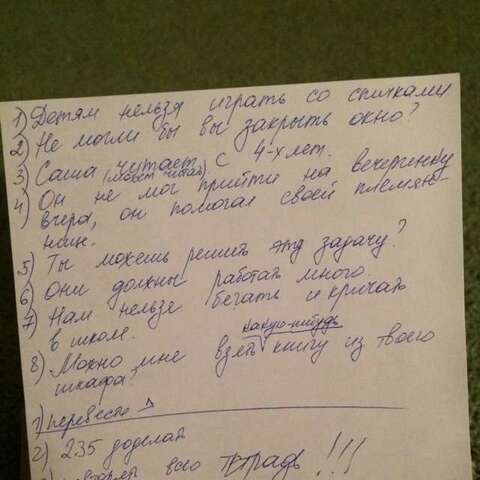 1) Детям нельзя играть со спичками
2) Не могли бы вы закрыть окно?
3) Саша читает с 4-х лет.
(может читать)
4) Он не мог прийти на вечеринку
вчера, он помогал своей племян-
нице.
5) Ты можешь решить эту задачу?
6) Они должны работать много.
7) Нам нельзя бегать и кричать
в школе.
какую-нибудь
8) Можно мне взять книгу из твоего
шкафа?
1) перевести
2) 235 доделай
всю тетрадь!!!